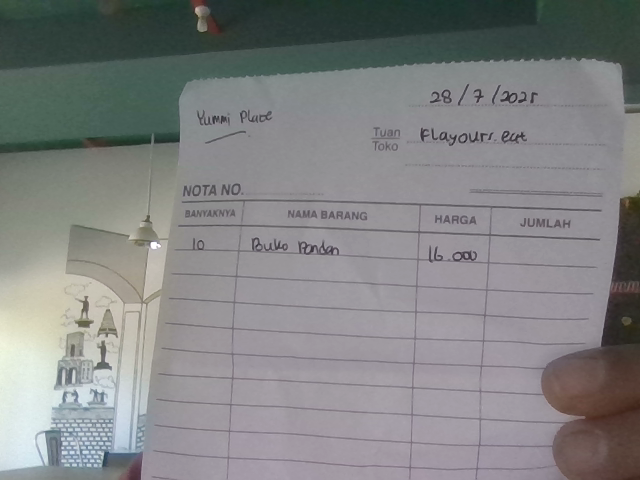 28/7/2025
Yummi Place
Tuan
Toko
Flavours.eat
NOTA NO.
BANYAKNYA NAMA BARANG HARGA JUMLAH
10 Buko Pandan 16.000